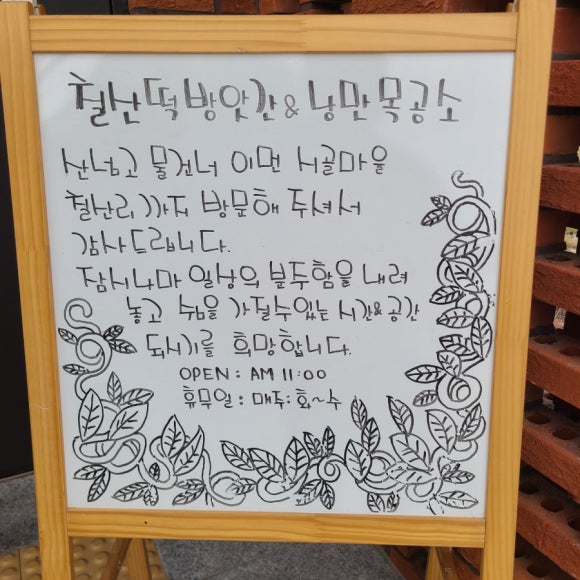 철산떡방앗간 & 낭만목공소
산넘고 물건너 이먼 시골마을
철산리까지 방문해 주셔서
감사드립니다.
잠시나마 일상의 분주함을 내려
놓고 쉼을 가질수있는 시간&공간
되시기를 희망합니다.
OPEN : AM 11:00
휴무일 : 매주 : 화~수